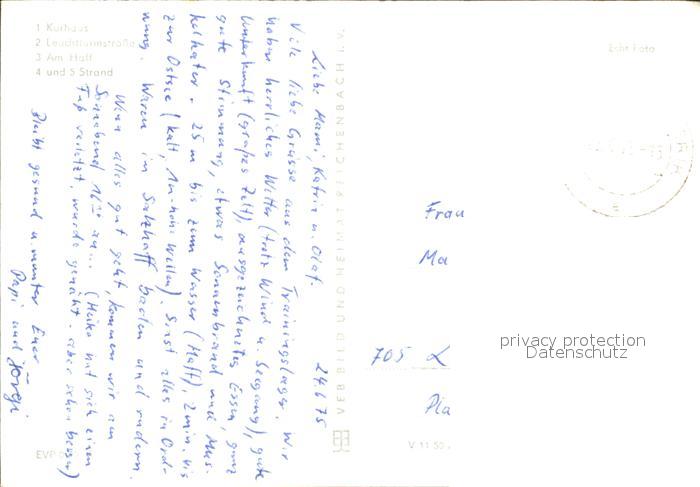 1 Kurhaus
2 Leuchtturmstraße
3 Am Haff
4 und 5 Strand
Echt Foto
24.6.75
Liebe Mami, Katrin u. Olaf.
Viele liebe Grüsse aus dem Trainingslager. Wir
haben herrliches Wetter (trotz Wind u. Seegang), gute
Unterkunft (großes Zelt), ausgezeichnetes Essen, ganz
gute Stimmung, etwas Sonnenbrand und Mus-
kelkater. 25 m bis zum Wasser (Haff), 2 min. bis
zur Ostsee (kalt, 1m-hohe Wellen). Sonst alles in Ord-
nung. Waren im Salzhaff baden und rudern.
Wenn alles gut geht, kommen wir am
Sonnabend 16 an... (Heiko hat sich einen
Fuß verletzt, wurde genäht - aber schon besser)
Bleibt gesund u. munter Euer
Papi und
VEB BILD UND HEIMAT REICHENBACH I. V.
Frau
Ma
705 L
Pla
privacy protection
Datenschutz
EVP
V 11 50